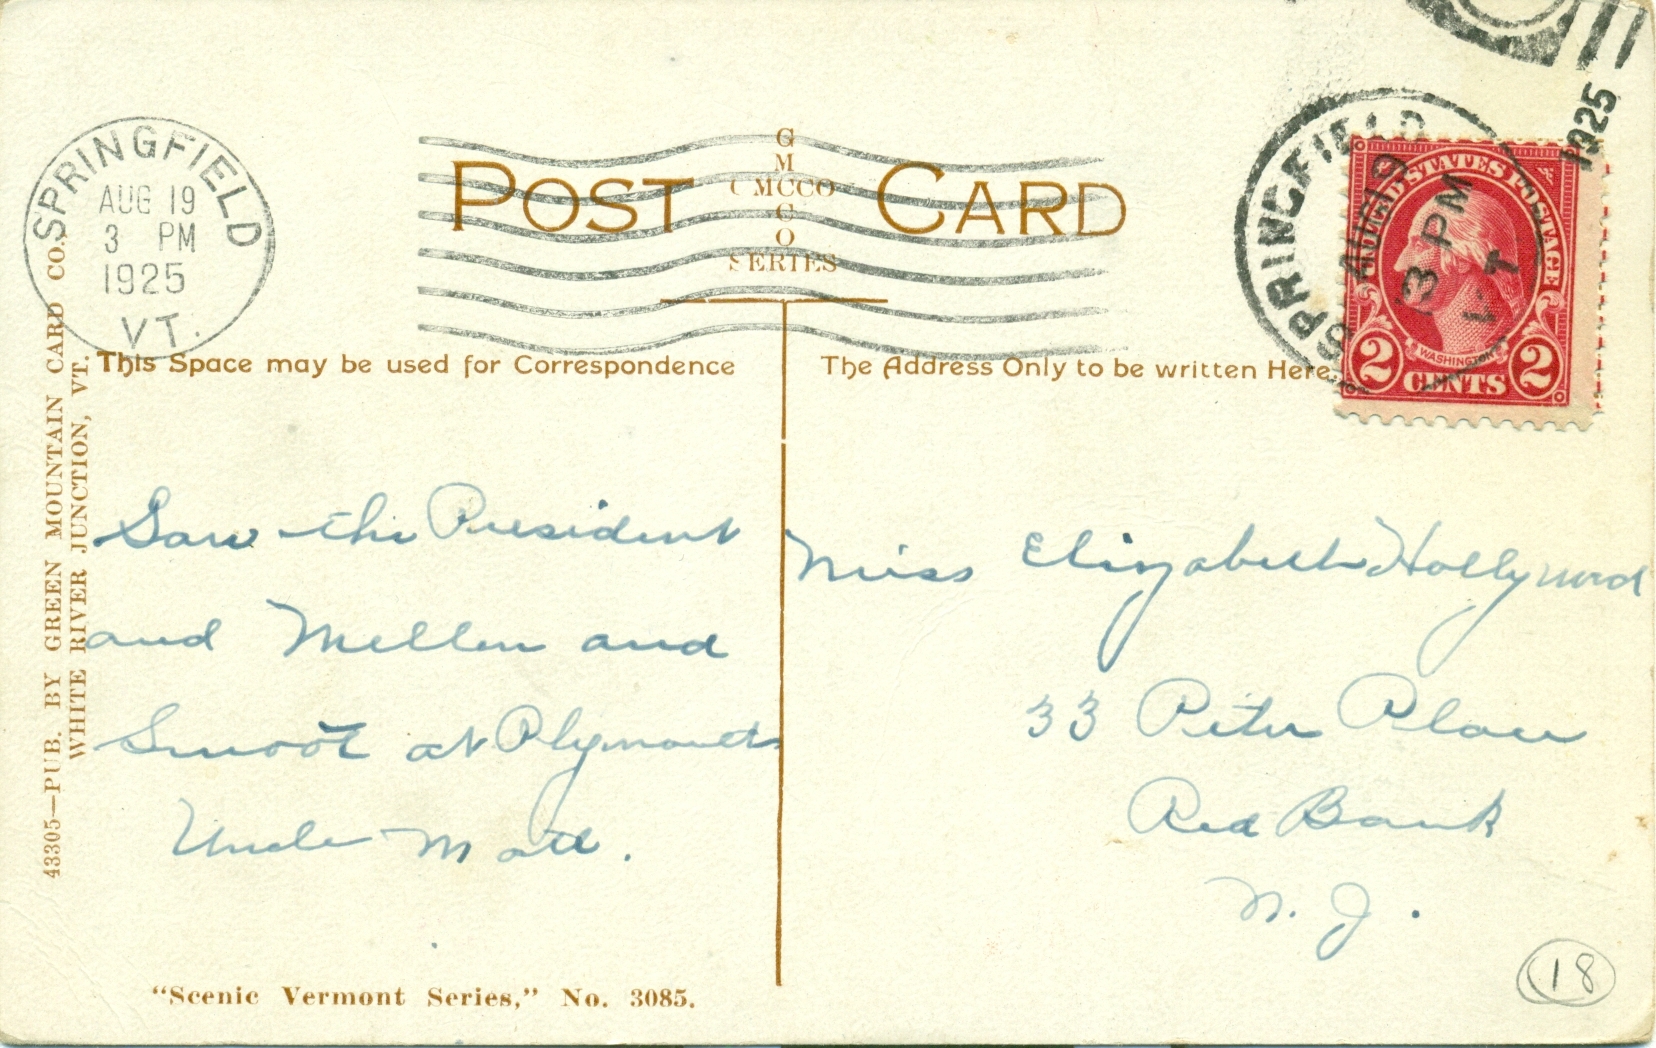 SPRINGFIELD
AUG 19
3 PM
1925
VT.
POST CARD
G
M
GMCCO
C
O
SERIES
SPRINGFIELD
AUG 19
3 PM
VT
1925
UNITED STATES POSTAGE
WASHINGTON
2 CENTS 2
This Space may be used for Correspondence
The Address Only to be written Here
43305—PUB. BY GREEN MOUNTAIN CARD CO.,
WHITE RIVER JUNCTION, VT.
Saw the President
and Mellen and
Smoot at Plymouth
Uncle Matt.
Miss Elizabeth Hollywood
33 Peter Place
Red Bank
N. J.
"Scenic Vermont Series," No. 3085.
18